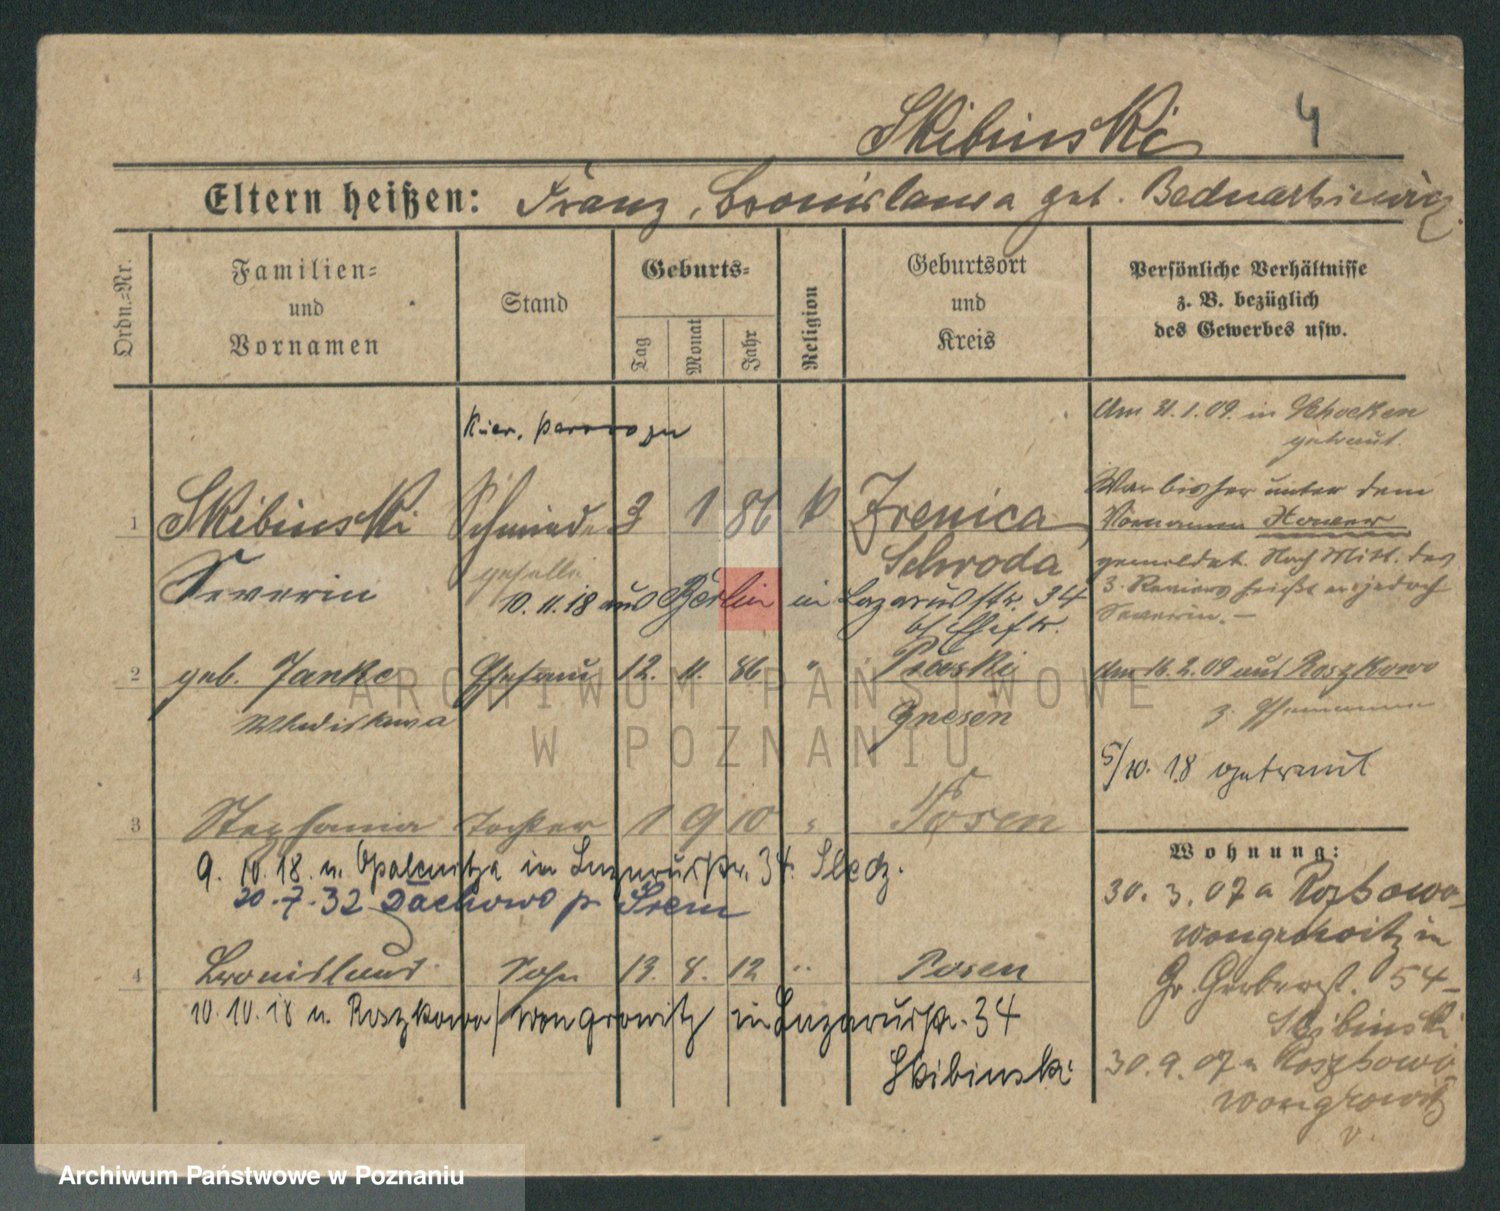 Skibinski 4
Eltern heißen: Franz, Bronislawa geb. Bednarkiewicz
Ordn.-Nr.
Familien-
und
Vornamen
Stand
Geburts-
Tag
Monat
Jahr
Religion
Geburtsort
und
Kreis
Persönliche Verhältnisse
z. B. bezüglich
des Gewerbes usw.
Am 31.1.09. in Schocken
getraut.
1 Skibinski Schmiede 3 1 86 k Zrenica
Severin geselle Schroda
War bisher unter dem
Vornamen Xaver
gemeldet. Nach Mittl. des
3. Reviers heißt er jedoch
Severin. —
10. 11. 18 aus Berlin in Lazarusstr. 34
b/ Ehefr.
2 geb. Janke Ehefrau 12. 11. 86 "
Wladislawa Gnesen
Am 16.2.09 aus Roszkowo
z. Ehemanne
5/10. 18 getraut
3 Stephania Tochter 1 9 10 " Posen
9. 10. 18. n. Opalenitza in Lazarusstr. 34.
20.-7.-32 Dachowo p. Śrem
4 Bronislaus Sohn 13. 8. 12 " Posen
10. 10. 18 n. Roszkowo/Wongrowitz in Lazarusstr. 34
Skibinski
Wohnung:
30. 3. 07 a Roszkowo
Wongrowitz in
Gr. Gerberst. 54 -
Skibinski
30. 9. 07 n Roszkowo
Wongrowitz
v.
ARCHIWUM PAŃSTWOWE
W POZNANIU
Archiwum Państwowe w Poznaniu